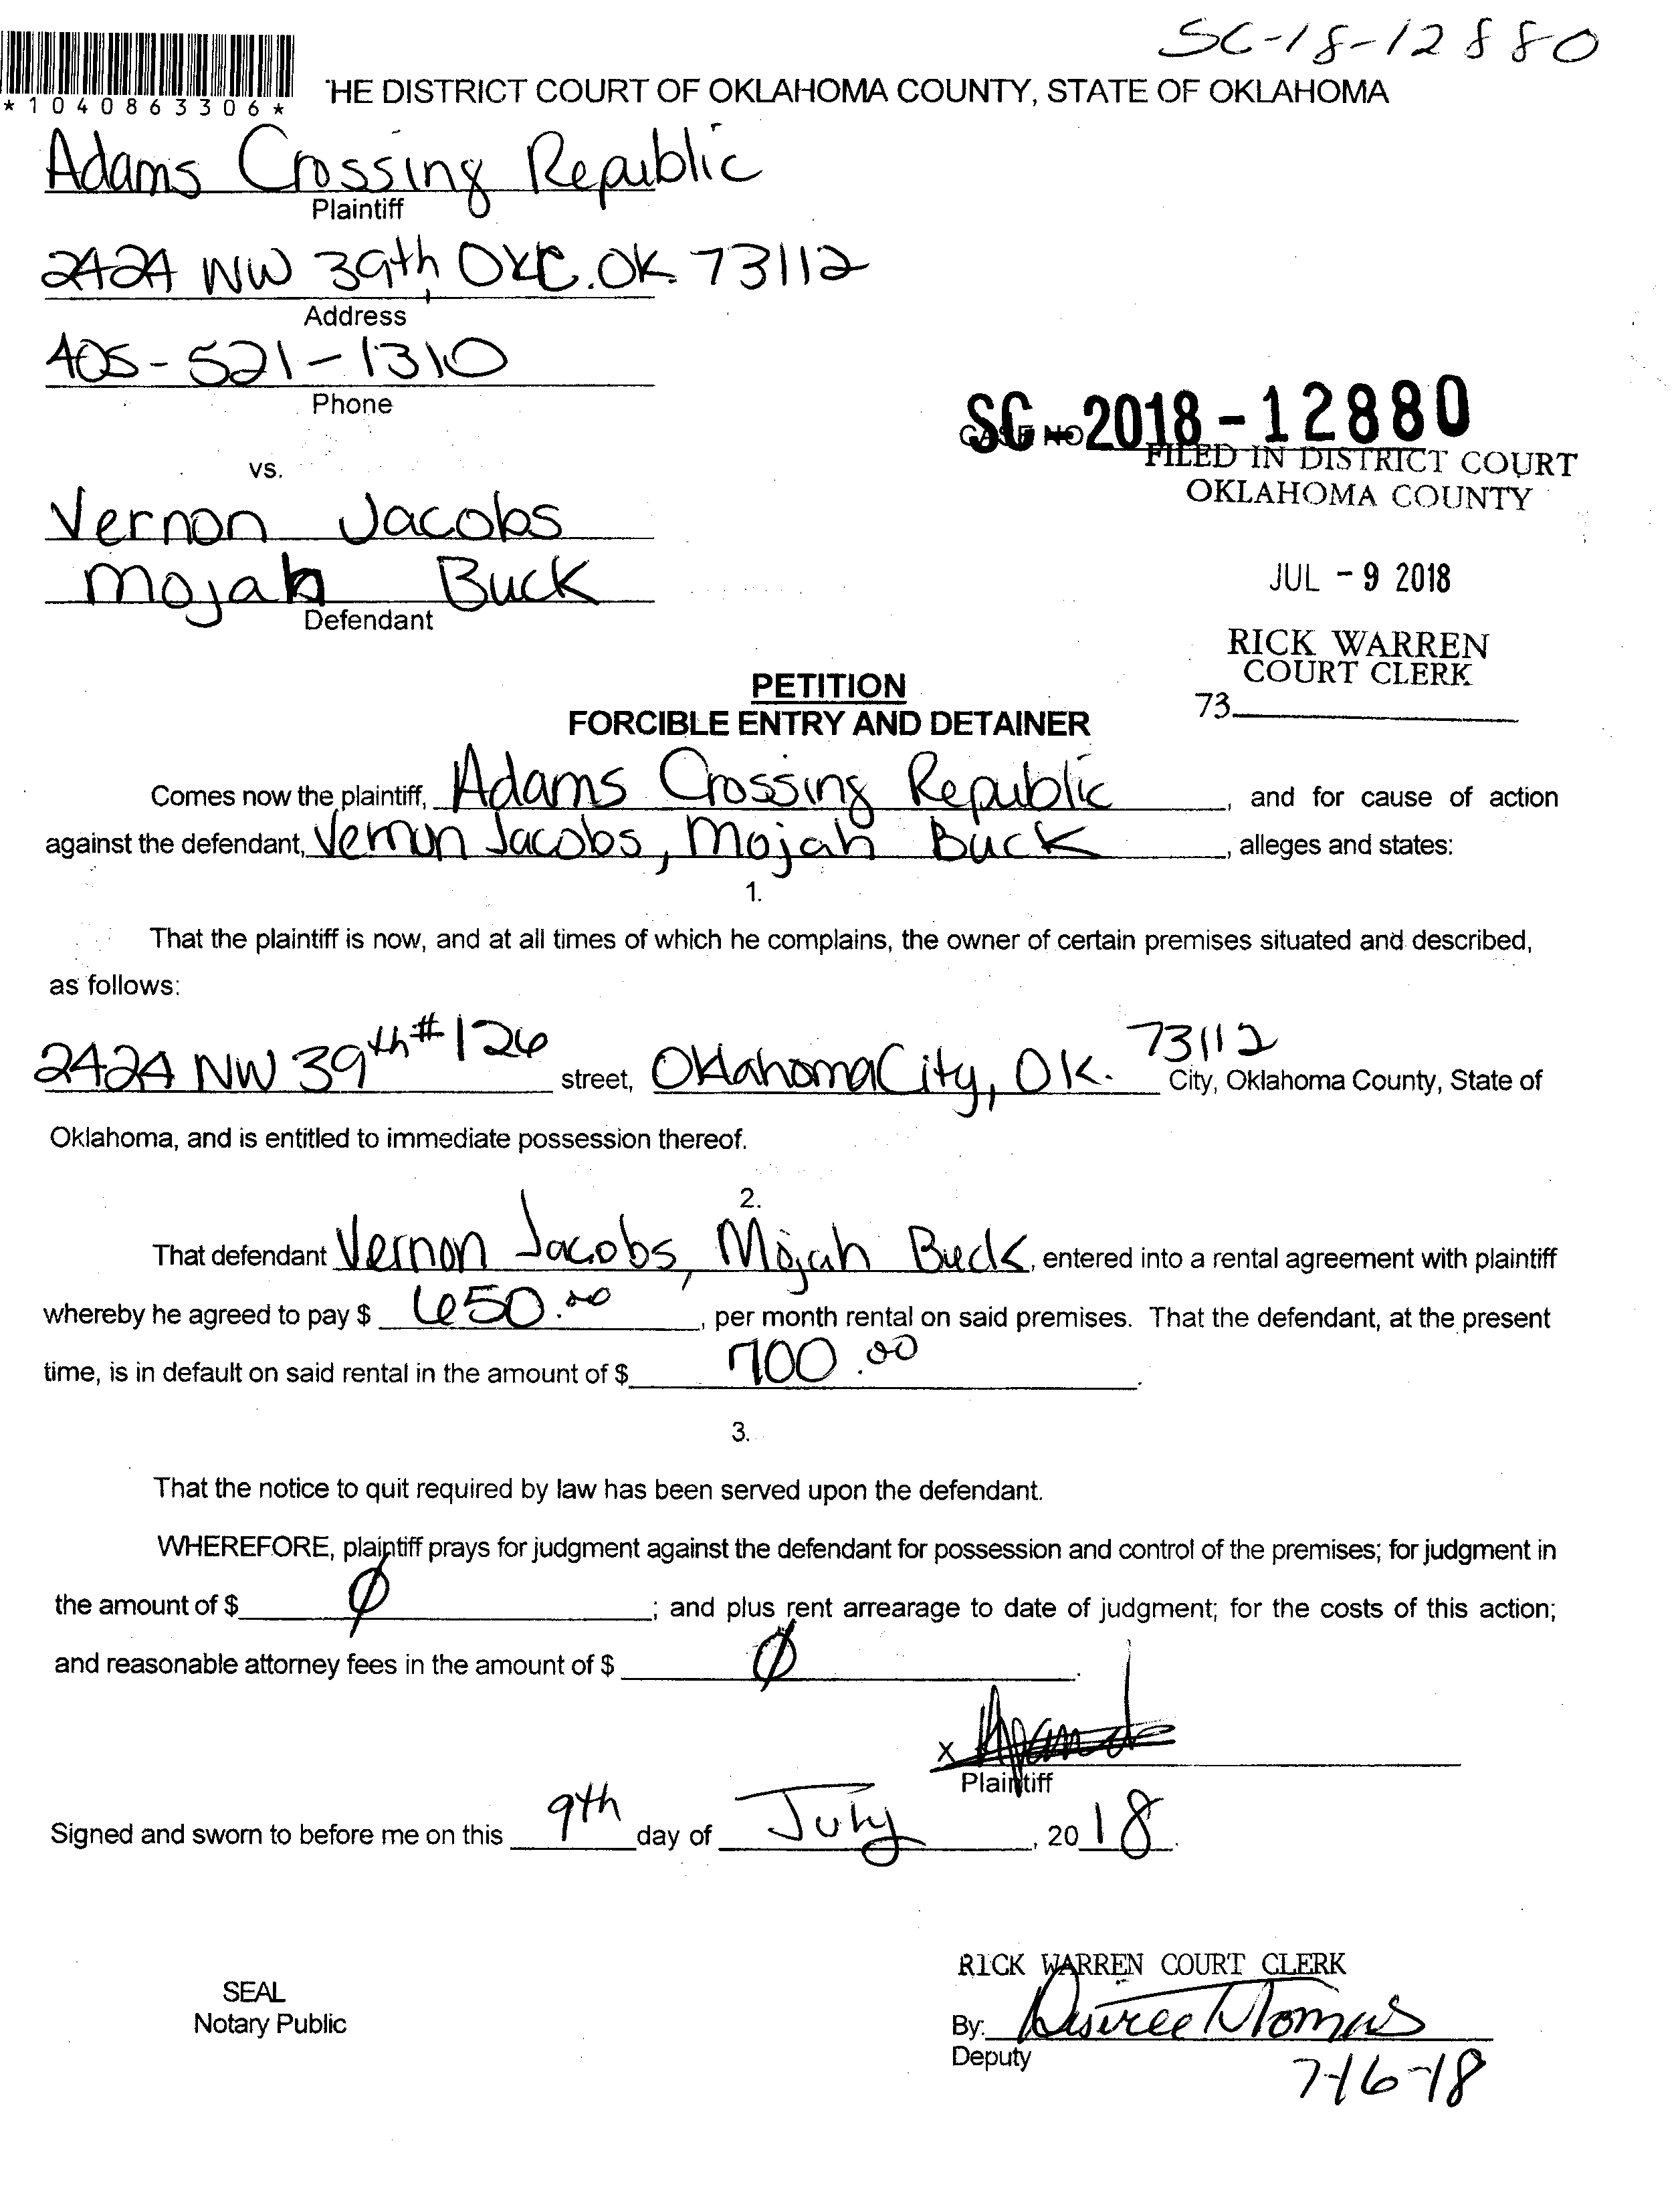 SC-18-12880
*1040863306*
'HE DISTRICT COURT OF OKLAHOMA COUNTY, STATE OF OKLAHOMA
Adams Crossing Republic
Plaintiff
2424 NW 39th, OKC. OK. 73112
Address
405-521-1310
Phone
SC 2018-12880
CASE NO
FILED IN DISTRICT COURT
OKLAHOMA COUNTY
vs.
Vernon Jacobs
Mojah Buck
Defendant
JUL - 9 2018
RICK WARREN
COURT CLERK
73
PETITION
FORCIBLE ENTRY AND DETAINER
Comes now the plaintiff, Adams Crossing Republic, and for cause of action
against the defendant, Vernon Jacobs, Mojah Buck, alleges and states:
1.
That the plaintiff is now, and at all times of which he complains, the owner of certain premises situated and described,
as follows:
2424 NW 39th #126 street, Oklahoma City, OK. 73112 City, Oklahoma County, State of
Oklahoma, and is entitled to immediate possession thereof.
2.
That defendant Vernon Jacobs, Mojah Buck, entered into a rental agreement with plaintiff
whereby he agreed to pay $ 650.00, per month rental on said premises. That the defendant, at the present
time, is in default on said rental in the amount of $ 700.00.
3.
That the notice to quit required by law has been served upon the defendant.
WHEREFORE, plaintiff prays for judgment against the defendant for possession and control of the premises; for judgment in
the amount of $ Ø; and plus rent arrearage to date of judgment; for the costs of this action;
and reasonable attorney fees in the amount of $ Ø.
X
Plaintiff
Signed and sworn to before me on this 9th day of July, 2018.
RICK WARREN COURT CLERK
SEAL
Notary Public
By: Desiree Thomas
Deputy
7-16-18